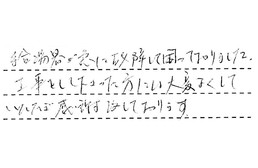 給湯器が急に故障して困っておりました。
工事をして下さった方には大変よくして
いただき感謝しております